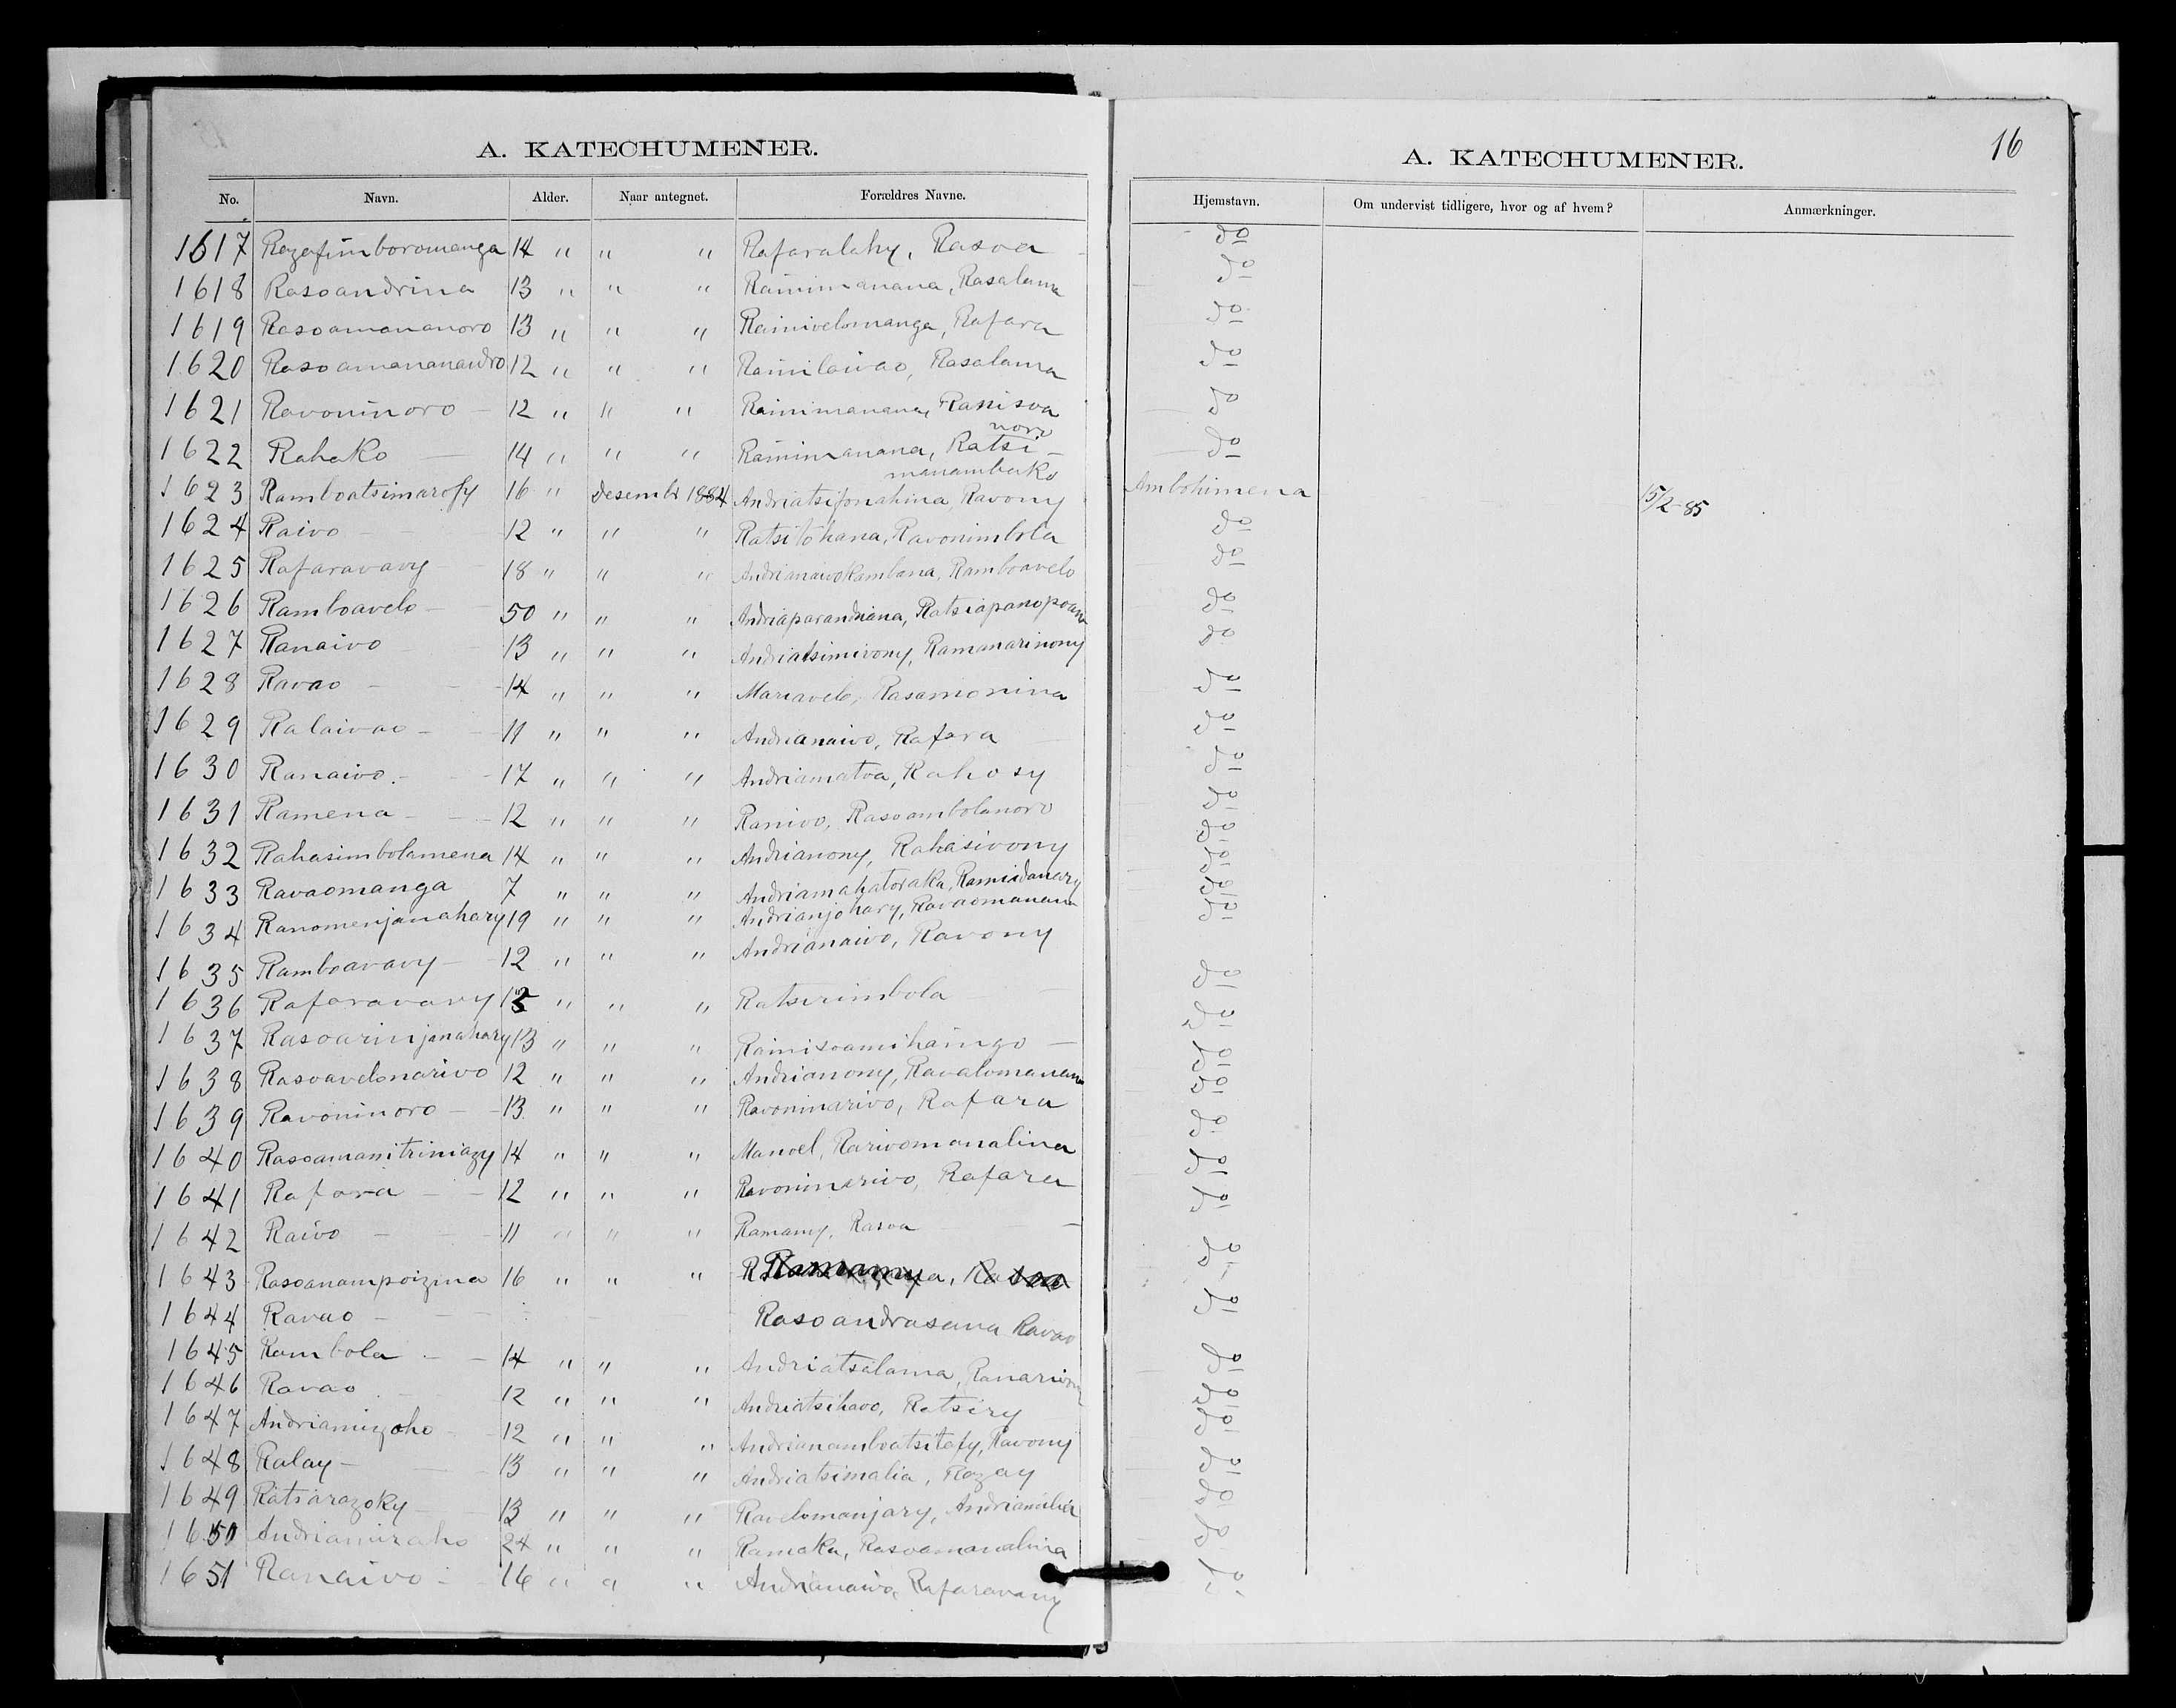 A. KATECHUMENER.
No. Navn. Alder. Naar antegnet. Forældres Navne.
1617 Razafimboromanga 14 " " " Rafaralahy, Rasoa
1618 Rasoandrina 13 " " " Rainimanana, Rasalama
1619 Rasoamananoro 13 " " " Rainivelomanga, Rafara
1620 Rasoamanandro 12 " " " Rainilaivao, Rasalama
1621 Ravoninoro 12 " " " Rainimanana, Ranisoa
noro
1622 Rahako 14 " " " Rainimanana, Ratsi-
manambako
1623 Ramboatsimarofy 16 " Desembr 1884 Andriatsifonahina, Ravony
1624 Raivo 12 " " " Ratsitohana, Ravonimbola
1625 Rafaravavy 18 " " " Andrianaivokambana, Ramboavelo
1626 Ramboavelo 50 " " " Andriaparandriana, Ratsiapanopoana
1627 Ranaivo 13 " " " Andriatsimivony, Ramanarinony
1628 Ravao 14 " " " Mariavelo, Rasamonina
1629 Ralaivao 11 " " " Andrianaivo, Rafara
1630 Ranaivo 17 " " " Andriamatoa, Rahosy
1631 Ramena 12 " " " Ranivo, Rasoambolanoro
1632 Rahasimbolamena 14 " " " Andrianony, Rahasivony
1633 Ravaomanga 7 " " " Andriamahatoraka, Ramidanary
1634 Ranomenjanahary 19 " " " Andrianjohary, Ravaomanana
1635 Ramboavavy 12 " " " Andrianaivo, Ravony
1636 Rafaravavy " " " Ratsirimbola
1637 Rasoarinjanahary 13 " " " Rainisoamihaingo
1638 Rasoavelonarivo 12 " " " Andrianony, Ravalomanana
1639 Ravoninoro 13 " " " Ravoninarivo, Rafara
1640 Rasoamanitriniazy 14 " " " Manoel, Rarivomanalina
1641 Rafara 12 " " " Ravoninarivo, Rafara
1642 Raivo 11 " " " Ramamy, Rasoa
1643 Rasoanampoizina 16 " " " Ramamy, Rasoa
1644 Ravao Rasoandrasana Ravao
1645 Rambola 14 " " " Andriatsalama, Ranarivony
1646 Ravao 12 " " " Andriatsihavo, Ratsiry
1647 Andriamizoho 12 " " " Andrianamboatsitafy, Ravony
1648 Ralay 13 " " " Andriatsimalia, Razay
1649 Ratsarazoky 13 " " " Ravelomanjary,
1650 Andriamiraho 24 " " " Ramaka, Rasoamanalina
1651 Ranaivo 16 " " " Andrianaivo, Rafaravavy
16
A. KATECHUMENER.
Hjemstavn. Om undervist tidligere, hvor og af hvem? Anmærkninger.
do
do
do
do
do
do
Ambohimena 15/2-85
do
do
do
do
do
do
do
do
do
do
do
do
do
do
do
do
do
do
do
do
do
do
do
do
do
do
do
do